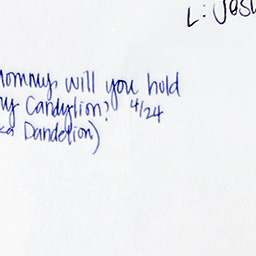 L: Jesu
Mommy, will you hold
my Candylion? 4/24
(aka Dandelion)